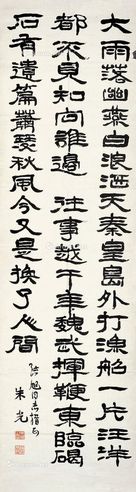 大雨落幽燕白浪滔天秦皇島外打漁船一片汪洋
都不見知向誰邊 往事越千年魏武揮鞭東臨碣
石有遺篇蕭瑟秋風今又是換了人間
旭同志指正
朱光